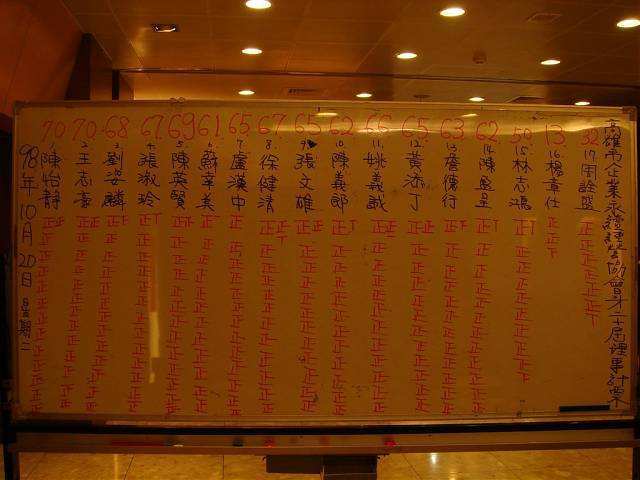 高雄市企業永續經營協會第二十屆理事計票
98年10月20日 星期二
70 70 68 67 69 61 65 67 65 62 66 65 63 62 50 13 32
1.陳怡靜
2.王志
3.劉姿麟
4.張淑玲
5.陳英賢
6.蘇幸美
7.盧漢中
8.徐健清
9.張文雄
10.陳義郎
11.姚義誠
12.黃添丁
13.詹德行
14.陳
15.林志鴻
16.楊章仕
17.周詮